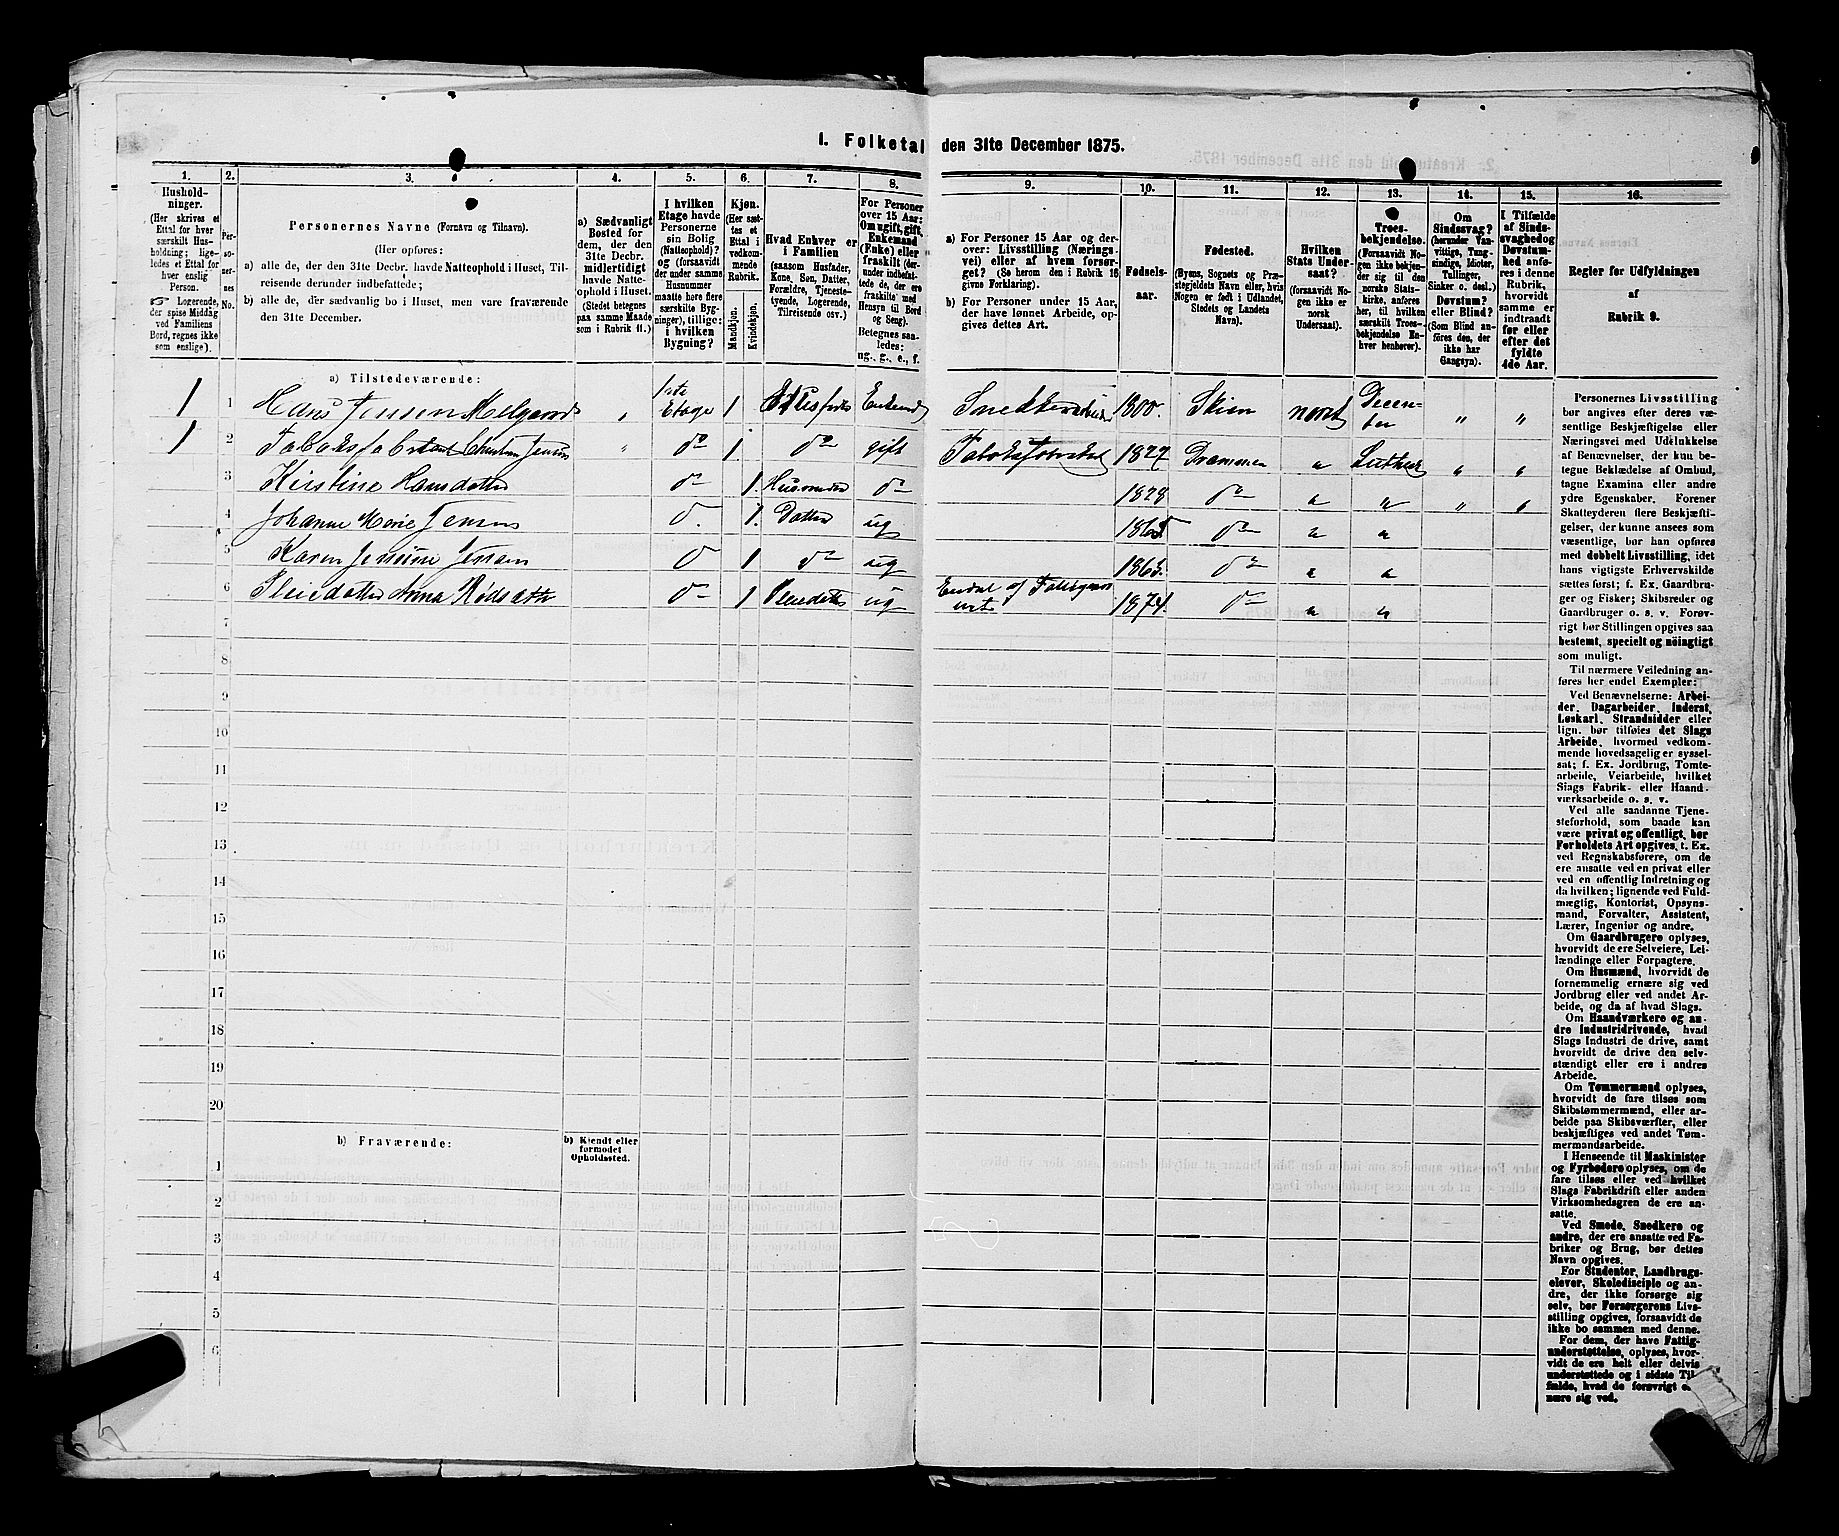 1. Folketal den 31te December 1875.
1.
2.
3.
4.
5.
6.
7.
8.
9.
10.
11.
12.
13.
14.
15.
16.
Hushold-
ninger.
(Her skrives et
Ettal for hver
særskilt Hus-
holdning; lige-
ledes et Ettal
for hver
enslig
Person.
Logerende,
der spise Middag
ved Familiens
Bord, regnes ikke
som enslige).
Per-
so-
ner-
nes
No.
Personernes Navne (Fornavn og Tilnavn).
(Her opføres:
a) alle de, der den 31te Decbr. havde Natteophold i Huset, Til-
reisende derunder indbefattede;
b) alle de, der sædvanlig bo i Huset, men vare fraværende
den 31te December.
a) Sædvanligt
Bosted for
dem, der den
31te Decbr.
midlertidigt
havde Natte-
ophold i Huset.
(Stedet betegnes
paa samme Maade
som i Rubrik 11.)
I hvilken
Etage havde
Personerne
sin Bolig
(Natteophold)?
og (forsaavidt
der under samme
Husnummer
maatte høre flere
særskilte Byg-
ninger), tillige:
i hvilken
Bygning?
Kjøn.
(Her sæt-
tes et
Ettal i
vedkom-
mende
Rubrik.
Mandkjøn.
Kvindekjøn.
Hvad Enhver er
i Familien
(saasom Husfader,
Kone, Søn, Datter,
Forældre, Tjeneste-
tyende, Logerende,
Tilreisende osv.)
For Personer
over 15 Aar:
Om ugift, gift,
Enkemand
(Enke) eller
fraskilt (der-
under indbefat-
tede de, der ere
fraskilte med
Hensyn til Bord
og Seng).
Betegnes saa-
ledes:
ug., g., e., f.
a) For Personer 15 Aar og der-
over: Livsstilling (Nærings-
vei) eller af hvem forsør-
get? (Se herom den i Rubrik 16
givne Forklaring).
b) For Personer under 15 Aar,
der have lønnet Arbeide, op-
gives dettes Art.
Fødsels-
aar.
Fødested.
(Byens, Sognets og Præ-
stegjeldets Navn eller, hvis
Nogen er født i Udlandet,
Stedets og Landets
Navn).
Hvilken
Stats Under-
saat?
(forsaavidt No-
gen ikke er
norsk
Undersaat).
Troes-
bekjendelse.
(Forsaavidt No-
gen ikke bekjen-
der sig til den
norske Stats-
kirke, anføres
her, til hvilken
særskilt Troes-
bekjendelse En-
hver henhører).
Om
Sindssvag?
(herunder Van-
vittige, Tung-
sindige, Idioter,
Tullinger,
Sinker o. desl.)
Døvstum?
eller Blind?
(Som Blind an-
føres den, der
ikke har
Gangsyn).
I Tilfælde
af Sinds-
svaghed og
Døvstum-
hed anfø-
res i denne
Rubrik,
hvorvidt
samme er
indtraadt
før eller
efter det
fyldte
4de Aar.
Regler for Udfyldningen
af
Rubrik 9.
a) Tilstedeværende:
1 1 Hans Jensen Melgaard " 1ste Etage 1 Enkemd 1800. Skien norsk " "
1 2 Tabaksfabrikant Christen Jensen " do 1 do gift Tabaksfabrikant 1827 Drammen " Luther " "
3 Kirstine Hansdatter do 1. do 1828 do " " " "
4 Johanne Marie Jensen do. 1. Datter ug 1865 do " "
5 Karen Jensine Jensen do 1 do ug 1863. do " "
6 Pleiedatter Anna do 1 Pleiedatter ug 1874. do " "
7
8
9
10
11
12
13
14
15
16
17
18
19
20
b) Fraværende:
b) Kjendt eller
formodet
Opholdssted.
1
2
3
4
5
6
Personernes Livsstilling
bør angives efter deres væ-
sentlige Beskjæftigelse eller
Næringsvei med Udelukkelse
af Benævnelser, der kun be-
tegne Beklædelse af Ombud,
tagne Examina eller andre
ydre Egenskaber. Forener
Skatteyderen flere Beskjæfti-
gelser, der kunne ansees som
væsentlige, bør han opføres
med dobbelt Livsstilling, idet
hans vigtigste Erhvervskilde
sættes først; f. Ex. Gaardbru-
ger og Fisker; Skibsreder og
Gaardbruger o. s. v. Forøv-
rigt bør Stillingen opgives saa
bestemt, specielt og nøiagtigt
som muligt.
Til nærmere Veiledning an-
føres her endel Exempler:
Ved Benævnelserne: Arbei-
der, Dagarbeider, Inderst,
Løskarl, Strandsidder eller
lign. bør tilføies det Slags
Arbeide, hvormed vedkom-
mende hovedsagelig er syssel-
sat; f. Ex. Jordbrug, Tomte-
arbeide, Veiarbeide, hvilket
Slags Fabrik- eller Haand-
værksarbeide o. s. v.
Ved alle saadanne Tjene-
steforhold, som baade kan
være privat og offentligt, bør
Forholdets Art opgives, t. Ex.
ved Regnskabsførere, om de
ere ansatte ved en privat eller
ved en offentlig Indretning og
da hvilken; lignende ved Fuld-
mægtig, Kontorist, Opsyns-
mand, Forvalter, Assistent,
Lærer, Ingeniør og andre.
Om Gaardbrugere oplyses,
hvorvidt de ere Selveiere, Lei-
lændinge eller Forpagtere.
Om Husmænd, hvorvidt de
fornemmelig ernære sig ved
Jordbrug eller ved andet Ar-
beide, og da af hvad Slags.
Om Haandværkere og an-
dre Industridrivende, hvad
Slags Industri de drive, samt
hvorvidt de drive den selv-
stændigt eller ere i andres
Arbeide.
Om Tømmermænd oplyses,
hvorvidt de fare tilsøs som
Skibstømmermænd, eller ar-
beide paa Skibsværfter, eller
beskjæftiges ved andet Tøm-
mermandsarbeide.
I Henseende til Maskinister
og Fyrbødere oplyses, om de
fare tilsøs eller ved hvilket
Slags Fabrikdrift eller anden
Virksomhedsgren de ere an-
satte.
Ved Smede, Snedkere og
andre, der ere ansatte ved Fa-
briker og Brug, bør dettes
Navn opgives.
For Studenter, Landbrugs-
elever, Skoledisciple og an-
dre, der ikke forsørge sig
selv, bør Forsørgerens Livs-
stilling opgives, forsaavidt de
ikke bo sammen med denne.
For dem, der have Fattig-
understøttelse, oplyses, hvor-
vidt de ere helt eller delvis
understøttede og i sidste Til-
fælde, hvad de forøvrigt er-
nære sig ved.